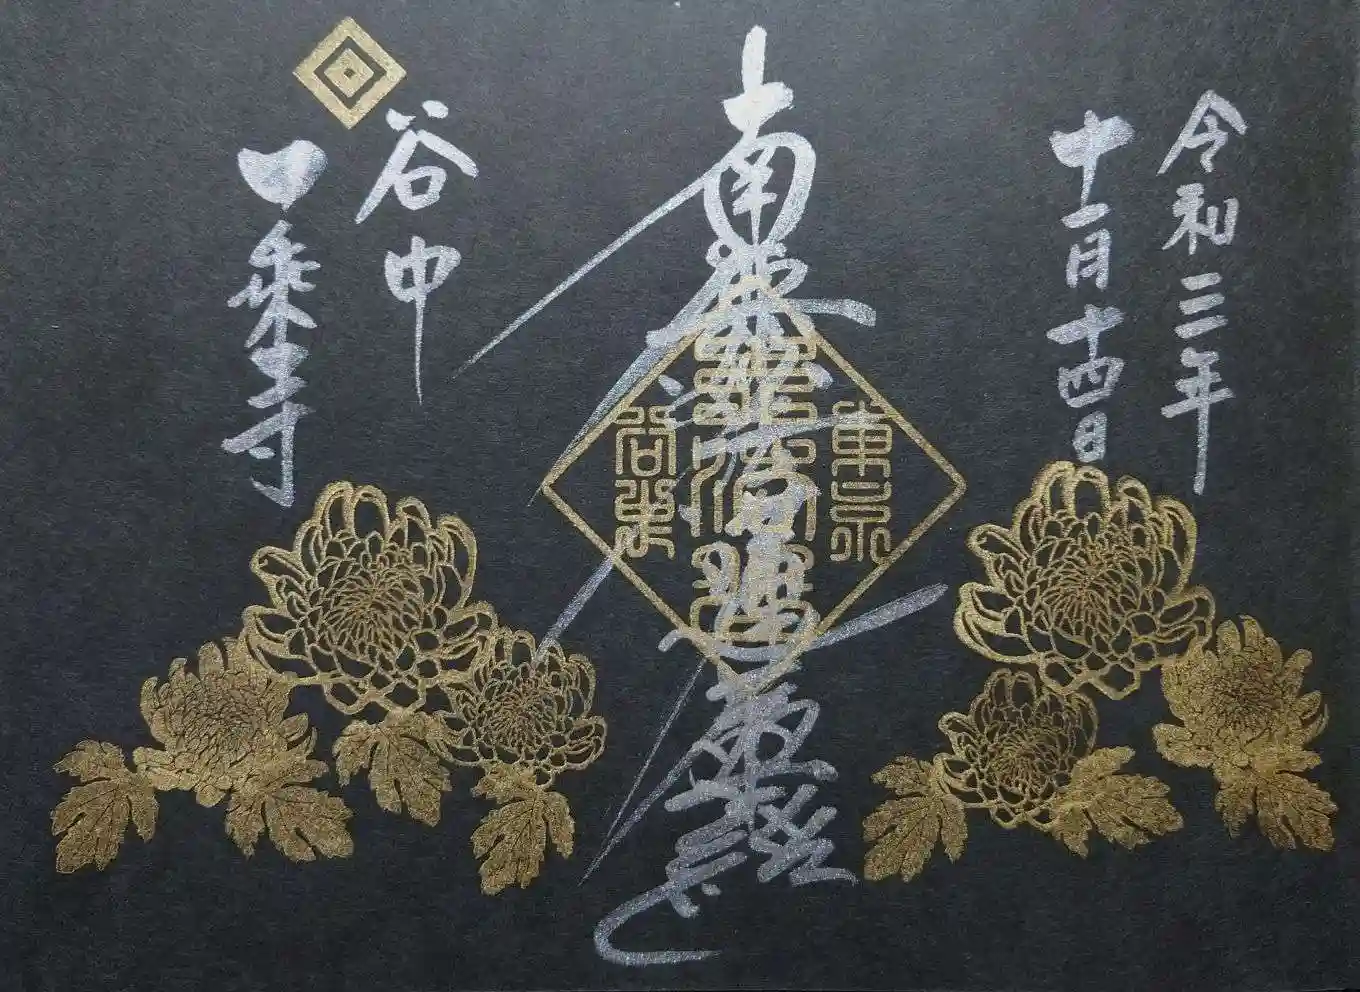 令和三年
十一月十四日
南無妙法蓮華経
東京
谷中
一乗寺